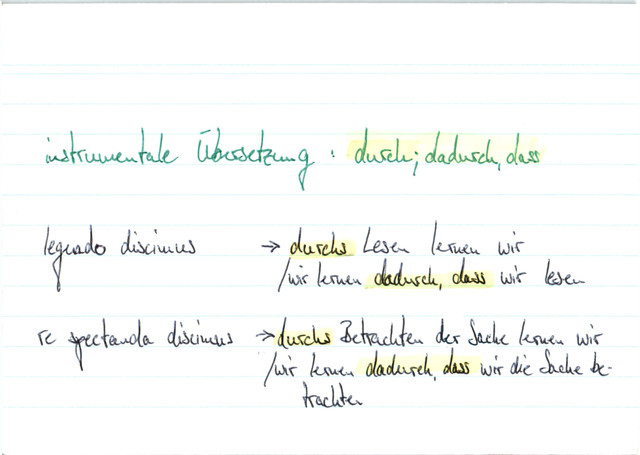 instrumentale Übersetzung : durch; dadurch, dass
legendo discimus → durchs Lesen lernen wir
/wir lernen dadurch, dass wir lesen
re spectanda discimus → durchs Betrachten der Sache lernen wir
/wir lernen dadurch, dass wir die Sache be-
trachten